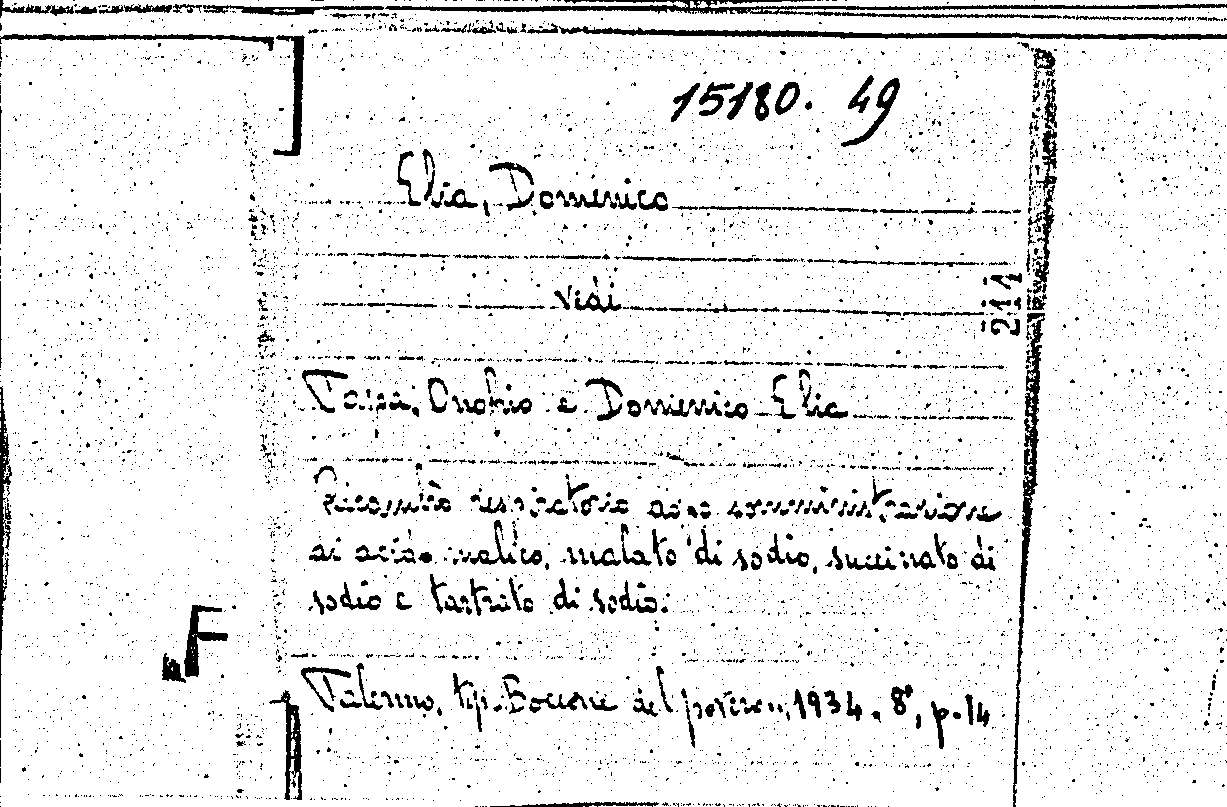 15180. 49
Elia, Domenico
vedi
211
Papa, Onofrio e Domenico Elia
Ricambio respiratorio dopo somministrazione
di acido malico, malato di sodio, succinato di
sodio e tartrato di sodio.
F
Palermo, tip. Boccone del povero, 1934. 8°, p. 14